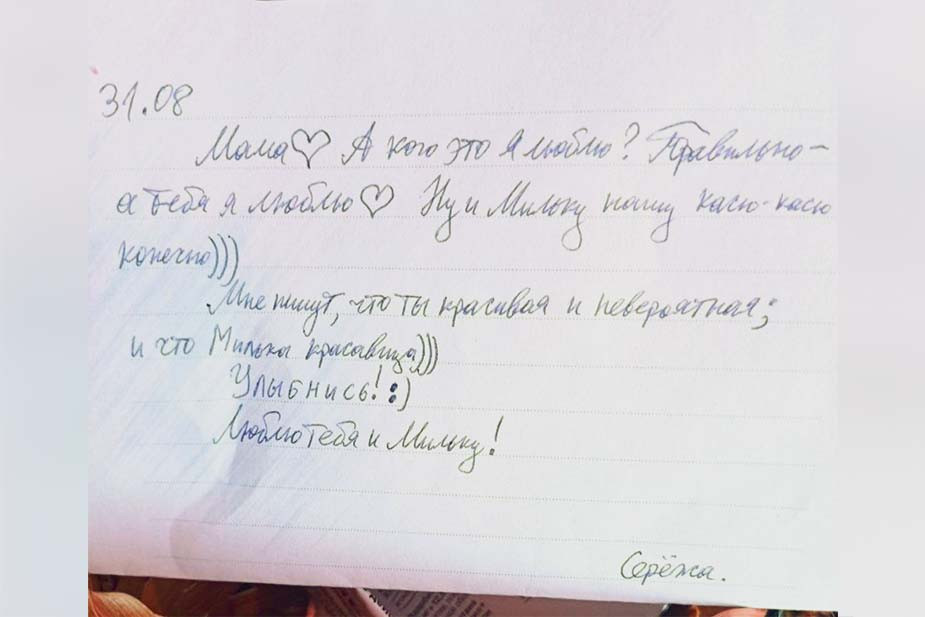 31.08
Мама♡ А кого это я люблю? Правильно-
а тебя я люблю♡ Ну и Мильку нашу касю-касю
конечно)))
Мне пишут, что ты красивая и невероятная;
и что Милька красавица)))
Улыбнись! :)
Люблю тебя и Мильку!
Серёжа.